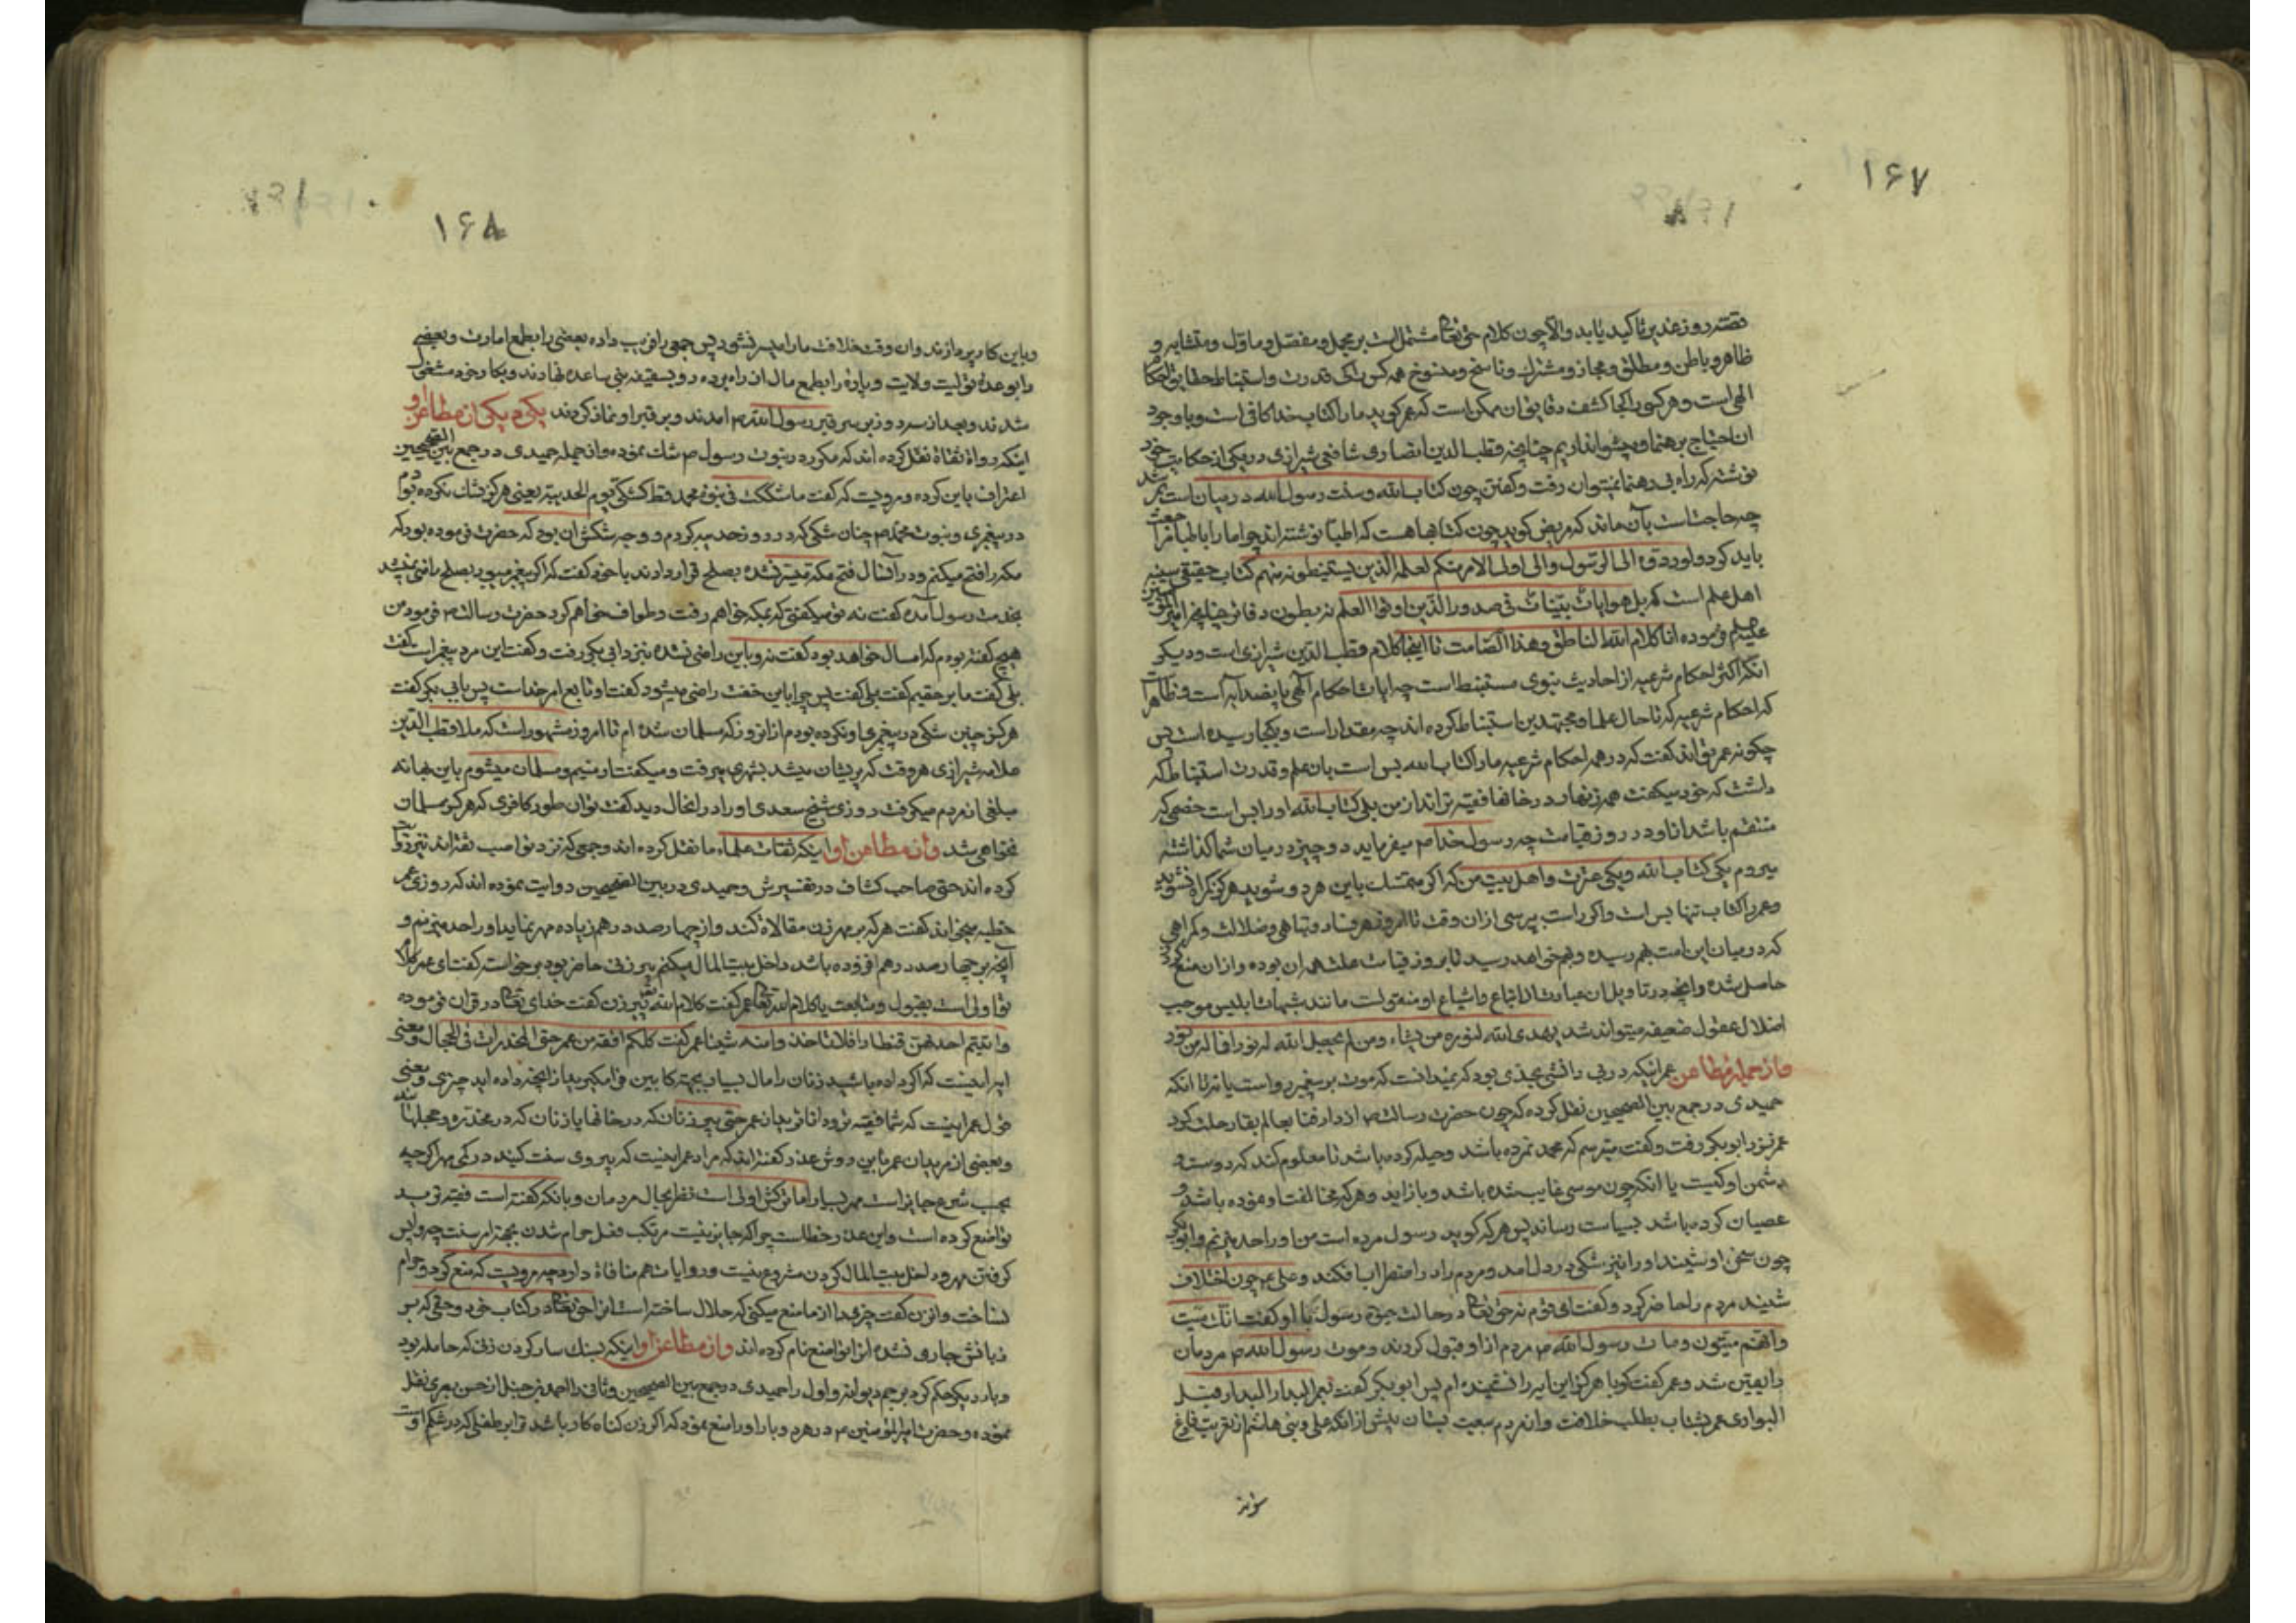 ۱۶۷
قصه روز غدیر تاکید یابد والا چون کلام حق تعالی مشتمل است بر مجمل و مفصل و ماول و متشابه و
ظاهر و باطن و مطلق و مجاز و مشترک و ناسخ و منسوخ همه کس را کی قدرت و استنباط حقایق احکام
الهی است و هر کسی را کجا کشف دقایق آن ممکن است که عمر کوید ما را کتاب خدا کافی است و با وجود
ان احتیاج برهنما و پیشوا نداریم چنانچه قطب الدین انصاری شافعی شیرازی در یکی از حکایت خود
نوشته که راه بی رهنما نمیتوان رفت و کفتن چون کتاب الله و سنت رسول الله در میان است
چه حاجت است بآن ماند که مریض کوید چون کتابها هست که اطبا نوشته اند چرا ما را باطبا
باید کرد و لو ردوه الی الرسول والی اولی الامر منکم لعلمه الذین یستنبطونه منهم کتاب حقیقی سینه
اهل علم است که بل هو ایات بینات فی صدور الذین اوتوا العلم نه بطون دفاتر چنانچه امیر المؤمنین
علیه م فرموده انا کلام الله الناطق و هذا الصامت تا اینجا کلام قطب الدین شیرازی است و دیکر
انکه اکثر احکام شرعیه از احادیث نبوی مستنبط است چه ایات احکام الهی پانصد آیه است و ظاهرا
که احکام شرعیه که تا حال علما و مجتهدین استنباط کرده اند چه مقدار است و بکجا رسیده است پس
چکونه عمر تواند کفت که در همه احکام شرعیه ما را کتاب الله بس است بان علم و قدرت استنباط که
داشت که خود میکفت همه زنها در خانها فقیه تر اند از من بلی کتاب الله او را بس است خصمی که
منتقم باشد از او در روز قیامت چه رسول خدا ص میفرماید دو چیز در میان شما کذاشته
میروم یکی کتاب الله و یکی عترت و اهل بیت من که اکر متمسک باین هر دو شوید هرکز کمراه نشوید
و عمر را کتاب تنها بس است و اکر راست پرسی از ان وقت تا امروز هر فساد و تباهی و ضلالت و کمراهی
که در میان این امت بهم رسیده و بهم خواهد رسید تا بروز قیامت علت همه ان بوده و از ان منع
حاصل شده و انچه در تاویل ان عبارت از اتباع و اشیاع او منقولست مانند شبهات ابلیس موجب
اضلال عقول ضعیفه میتواند شد یهدی الله لنوره من یشاء و من لم یجعل الله له نورا فما له من نور
و از جمله مطاعن عمر اینکه در بی دانشی بحدی بود که نمیدانست که موت بر پیغمبر رواست یا نه تا انکه
حمیدی در جمع بین الصحیحین نقل کرده که چون حضرت رسالت ص از دار فنا بعالم بقا رحلت کرد
عمر نزد ابو بکر رفت و کفت میترسم که محمد نمرده باشد و حیله کرده باشد تا معلوم کند که دوست و
دشمن او کیست یا انکه چون موسی غایب شده باشد و باز اید و هر که مخالفت او نموده باشد و
عصیان کرده باشد بسیاست رساند پس هر که کوید رسول مرده است من او را حد میزنم و ابو بکر
چون سخن او شنید او را نیز شکی در دل امد و مردم را در اضطراب افکند و علی ع چون اختلاف
شنید مردم را حاضر کرد و کفت ای قوم نه حق تعالی در حالت حیوة رسول با او کفت انک میت
و انهم میتون و مات رسول الله ص مردم از او قبول کردند و موت رسول الله ص مردمان
را یقین شد و عمر کفت کویا هرکز این ایه را نشنیده ام پس ابو بکر کفت بعمر البدار البدار قبل
البوار ای عمر بشتاب بطلب خلافت و از مردم بیعت بستان پیش از انکه علی و بنی هاشم از تعزیت فارغ
شوند
۱۶۸
و باین کار پردازند و ان وقت خلافت ما را میسر نشود پس جمعی را فریب داده بعضی را بطمع امارت و بعضی
را بوعده تولیت ولایت و پارهٔ را بطمع مال از راه برده رو بسقیفه بنی ساعده نهادند و بکار خود مشغول
شدند و بعد از سه روز بر سر قبر رسول الله ص امدند و بر قبر او نماز کردند یکی دیکر از مطاعن او
اینکه رواة ثقاة نقل کرده اند که مکرر در نبوت رسول ص شک نموده و از جمله حمیدی در جمع بین الصحیحین
اعتراف باین کرده و مرویست که کفت ما شککت فی نبوة محمد قط کشکی یوم الحدیبیه یعنی هرکز شک نکرده بودم
در پیغمبری و نبوت محمد ص چنان شکی که در روز حدیبیه کردم و وجه شکش ان بود که حضرت فرموده بود که
مکه را فتح میکنم و در آنسال فتح مکه میسر نشده بصلح قرار دادند با خود کفت که اکر پیغمبر میبود بصلح راضی نمیشد
بخدمت رسول آمده کفت نه تو میکفتی که بمکه خواهم رفت و طواف خواهم کرد حضرت رسالت ص فرمود من
هیچ کفته بودم که امسال خواهد بود کفت نه و باین راضی نشده نیزد ابی بکر رفت و کفت این مرد پیغمبر است کفت
بلی کفت ما بر حقیم کفت بلی کفت پس چرا باین خفت راضی میشود کفت او تابع امر خداست پس بابی بکر کفت
هرکز چنین شکی در پیغمبری او نکرده بودم از انروز که مسلمان شده ام تا امروز مشهور است که ملا قطب الدین
علامه شیرازی هر وقت که پریشان میشد بشهری میرفت و میکفت ارمنیم و مسلمان میشوم باین بهانه
مبلغی از مردم میکرفت روزی شیخ سعدی او را در انحال دید کفت تو ان طور کافری که هرکز مسلمان
نخواهی شد و از مطاعن او اینکه ثقات علماء ما نقل کرده اند و جمعی که نزد نواصب ثقه اند نیز روایت
کرده اند حتی صاحب کشاف در تفسیرش و حمیدی در بین الصحیحین روایت نموده اند که روزی عمر
خطبه میخواند کفت هر که بر مهر زن مغالاة کند و از چهارصد درهم زیاده مهر نماید او را حد میزنم و
آنچه بر چهارصد درهم افزوده باشد داخل بیت المال میکنم پیر زنی حاضر بود برخواست کفت ای عمر کلام
تو اولی است بقبول و متابعت یا کلام الله تعالی عمر کفت کلام الله پیر زن کفت خدای تعالی در قران فرموده
و اتیتم احدیهن قنطارا فلا تاخذوا منه شیئا عمر کفت کلکم افقه من عمر حتی المخدرات فی الحجال و معنی
ایه اینست که اکر داده باشید زنان را مال بسیار بجهة کابین فرا مکیرید از انچه داده اید چیزی و معنی
قول عمر اینست که شما فقیه تر و داناترید از عمر حتی پیر زنان که در خانها یا زنان که در مخدره و حجلها اند
و بعضی از مریدان عمر باین روش عذر کفته اند که مراد عمر اینست که پیروی سنت کنید در کمی مهر اکر چه
بحسب شرع جایز است مهر بسیار اما ترکش اولی است نظر بحال مردمان و بانکه کفته است فقیه ترید
تواضع کرده است و این عذر خطاست چرا که جایز نیست مرتکب فعل حرام شدن بجهة امر سنت چه واپس
کرفتن مهر و داخل بیت المال کردن مشروع نیست و روایات هم منافاة دارد چه مرویست که منع کرد و حرام
ساخت و انزن کفت چیزی را از ما منع میکنی که حلال ساخته است انرا حق تعالی در کتاب خود و حقی که بر
زبانش جاری شده انرا تواضع نام کرده اند و از مطاعن او اینکه بسنک سار کردن زنی که حامله بود
و بار دیکر حکم کرد برجم دیوانه و اول را حمیدی در جمع بین الصحیحین و ثانی را احمد بن حنبل از حسن بصری نقل
نموده و حضرت امیر المؤمنین ع در هر دو بار او را منع نمود که اکر زن کناه کار باشد ترا بر طفلی که در شکم اوست